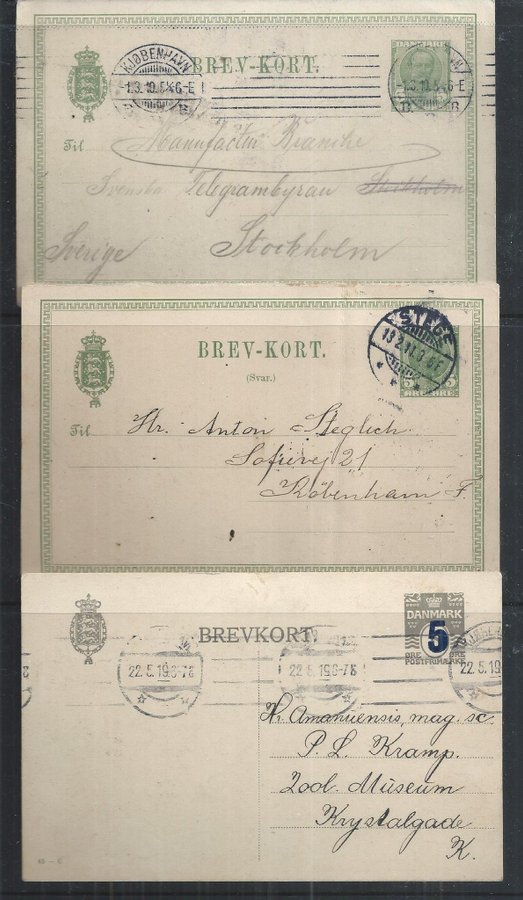 KJØBENHAVN
-1.3.10.5¼6-E
B
BREV-KORT.
DANMARK
-1.3.10.5¼6-E
B B
Til Manufactur Branche
Svenska Telegrambyrau Stockholm
Sverige Stockholm
BREV-KORT.
(Svar.)
STEGE
5 5
ØRE ØRE
Til Hr. Anton Steglich
Sofievej 21
København F.
BREVKORT.
DANMARK
5
ØRE ØRE
POSTFRIMÆRKE
22.5.19.6-7E
22.5.19.6-7E
22.5.19
Hr. Amanuensis, mag. sc.
P. L. Kramp.
Zool. Museum
Krystalgade
K.